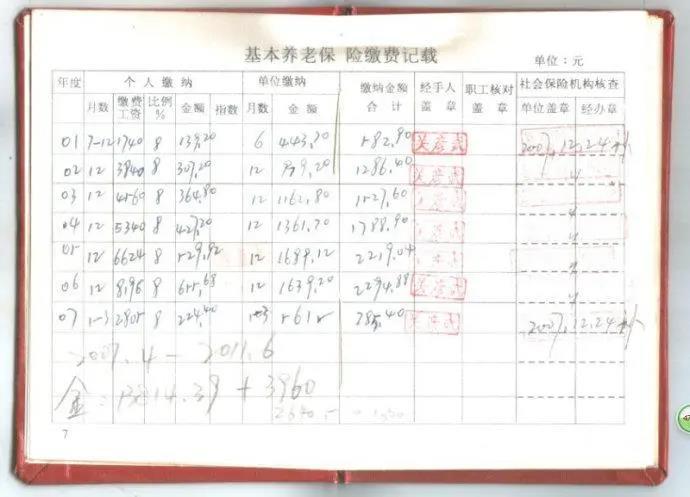 基本养老保 险缴费记载
单位：元
年度 个人缴纳 单位缴纳 缴纳金额合计 经手人盖章 职工核对盖章 社会保险机构核查
月数 缴费工资 比例% 金额 指数 月数 金额 单位盖章 经办章
01 7-12 1740 8 139.20 6 443.70 582.90 吴彦武 2007.12.24补
02 12 3840 8 307.20 12 979.20 1286.40 〃
03 12 4560 8 364.80 12 1162.80 1527.60 〃
04 12 5340 8 427.20 12 1361.70 1788.90 〃
05 12 6624 8 529.92 12 1689.12 2219.04 〃
06 12 8196 8 655.68 12 1639.20 2294.88 〃
07 1-3 2805 8 224.40 1-3 561 785.40 2007.12.24补
2007.4 - 2011.6
金: 13814.39 + 3960
7